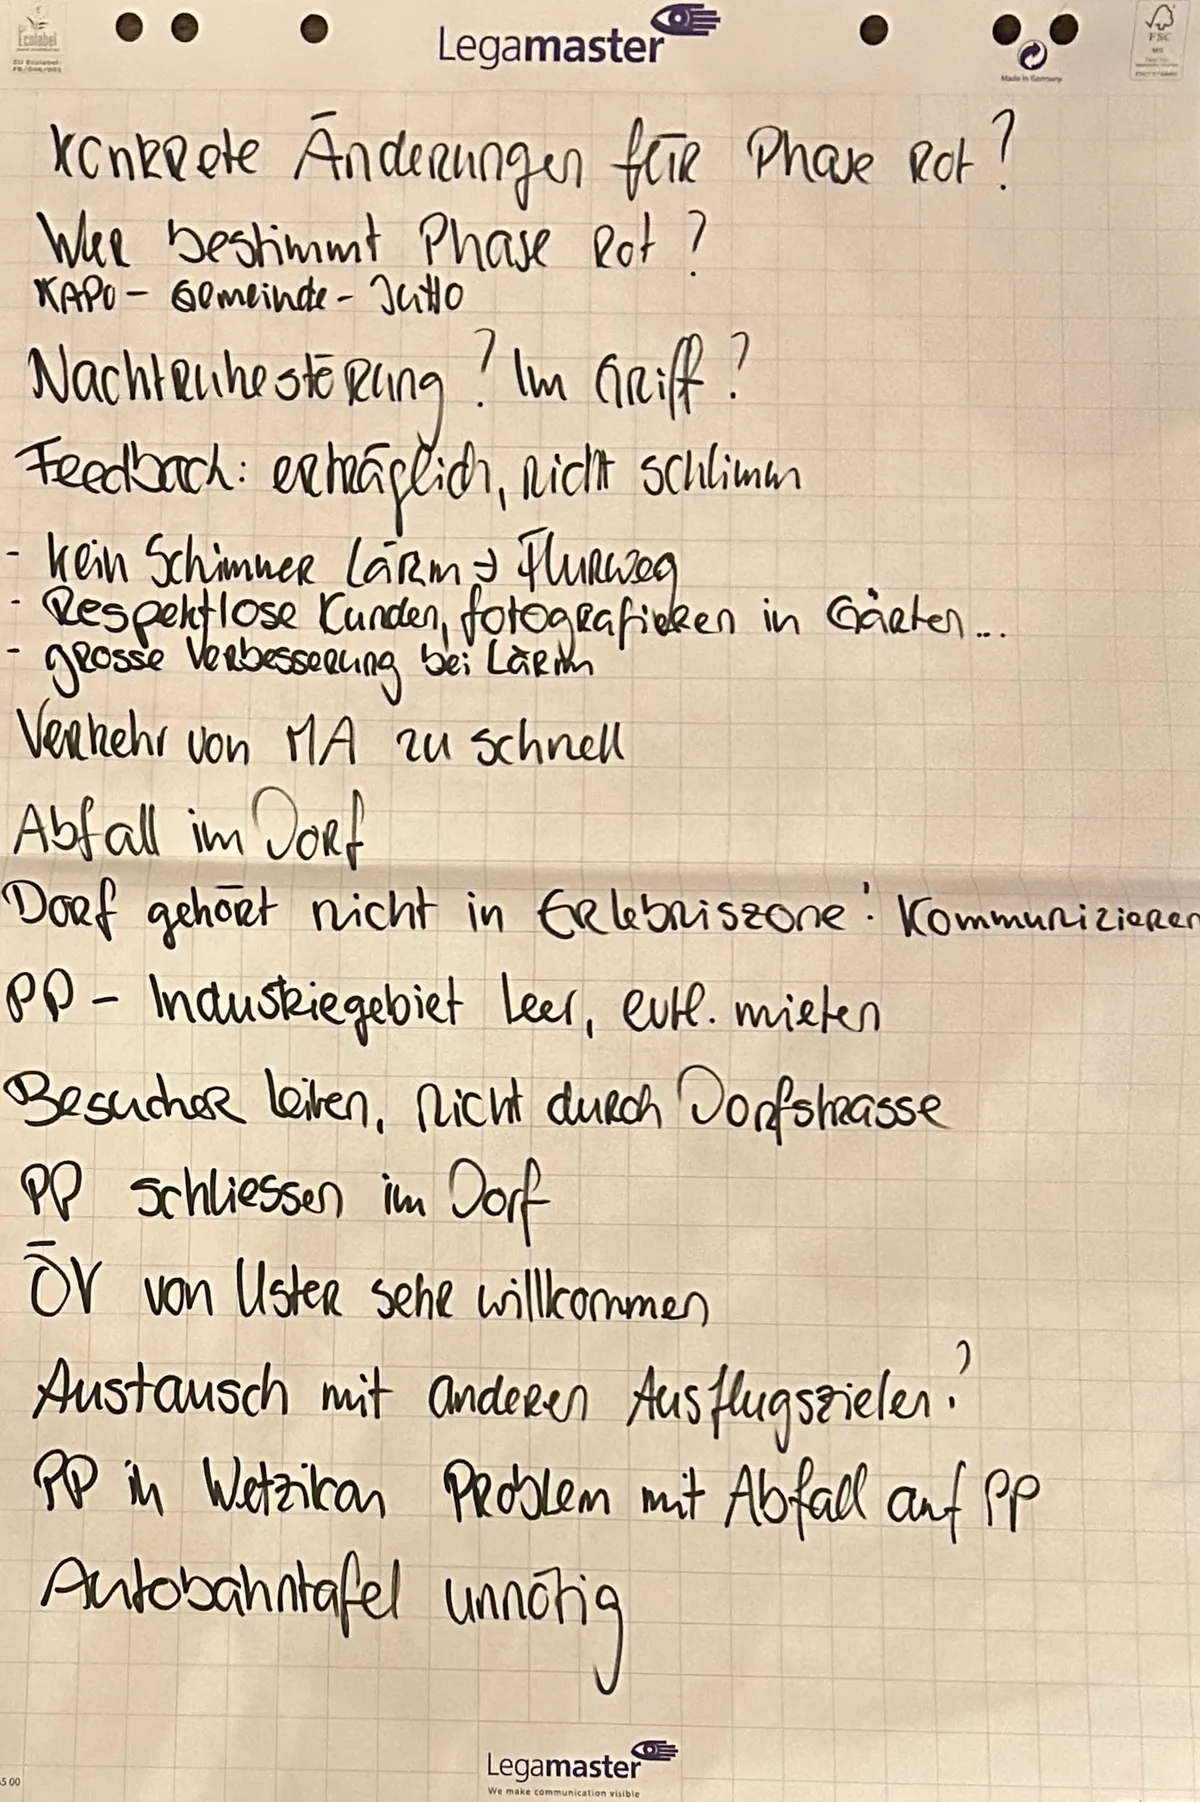 Ecolabel
Legamaster
FSC
Made in Germany
Konkrete Änderungen für Phase Rot?
Wer bestimmt Phase Rot?
KAPO - Gemeinde - Jutto
Nachtruhestörung? Im Griff?
Feedback: erträglich, nicht schlimm
- kein Schimmer Lärm → Flurweg
- Respektlose Kunden, fotografieren in Gärten...
- grosse Verbesserung bei Lärm
Verkehr von MA zu schnell
Abfall im Dorf
Dorf gehört nicht in Erlebniszone: Kommunizieren
PP - Industriegebiet leer, evtl. mieten
Besucher leiten, nicht durch Dorfstrasse
PP schliessen im Dorf
ÖV von Uster sehr willkommen
Austausch mit anderen Ausflugszielen?
PP in Wetzikon Problem mit Abfall auf PP
Autobahntafel unnötig
Legamaster
We make communication visible